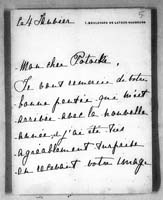 Le 4 Janvier
5
1, BOULEVARD DE LATOUR-MAUBOURG
Mon cher Potocki,
Je vous remercie de votre
bonne pensée qui m'est
arrivée avec la nouvelle
année, j'ai été très
agréablement surprise
en recevant votre